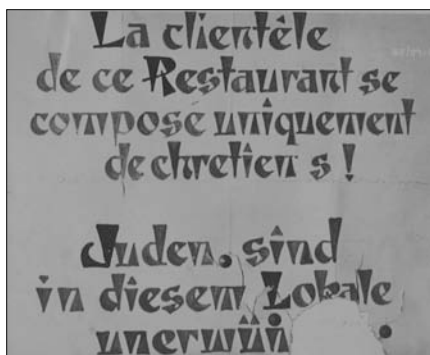 La clientêle
de ce Restaurant se
compose uniquement
de chretien s !
Juden. sind
in diesem Lokale
unerwün